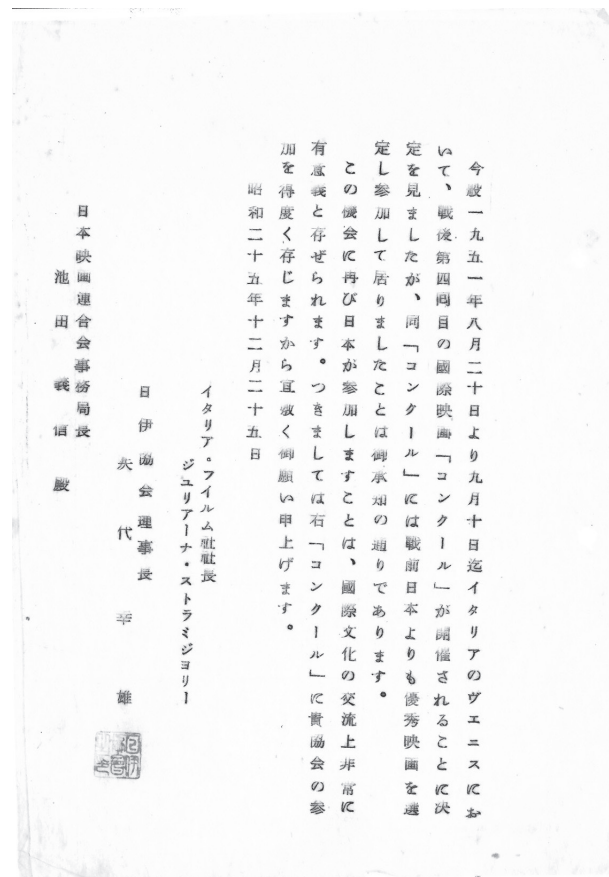 今般一九五一年八月二十日より九月十日迄イタリアのヴエニスにお
いて、戦後第四回目の國際映画「コンクール」が開催されることに決
定を見ましたが、同「コンクール」には戦前日本よりも優秀映画を選
定し参加して居りましたことは御承知の通りであります。
この機会に再び日本が参加しますことは、國際文化の交流上非常に
有意義と存ぜられます。つきましては右「コンクール」に貴協会の参
加を得度く存じますから宜敷く御願い申上げます。
昭和二十五年十二月二十五日
イタリア。フイルム社社長
ジユリアーナ・ストラミジヨリー
日伊協会理事長
矢代幸雄
日本映画連合会事務局長
池田義信殿